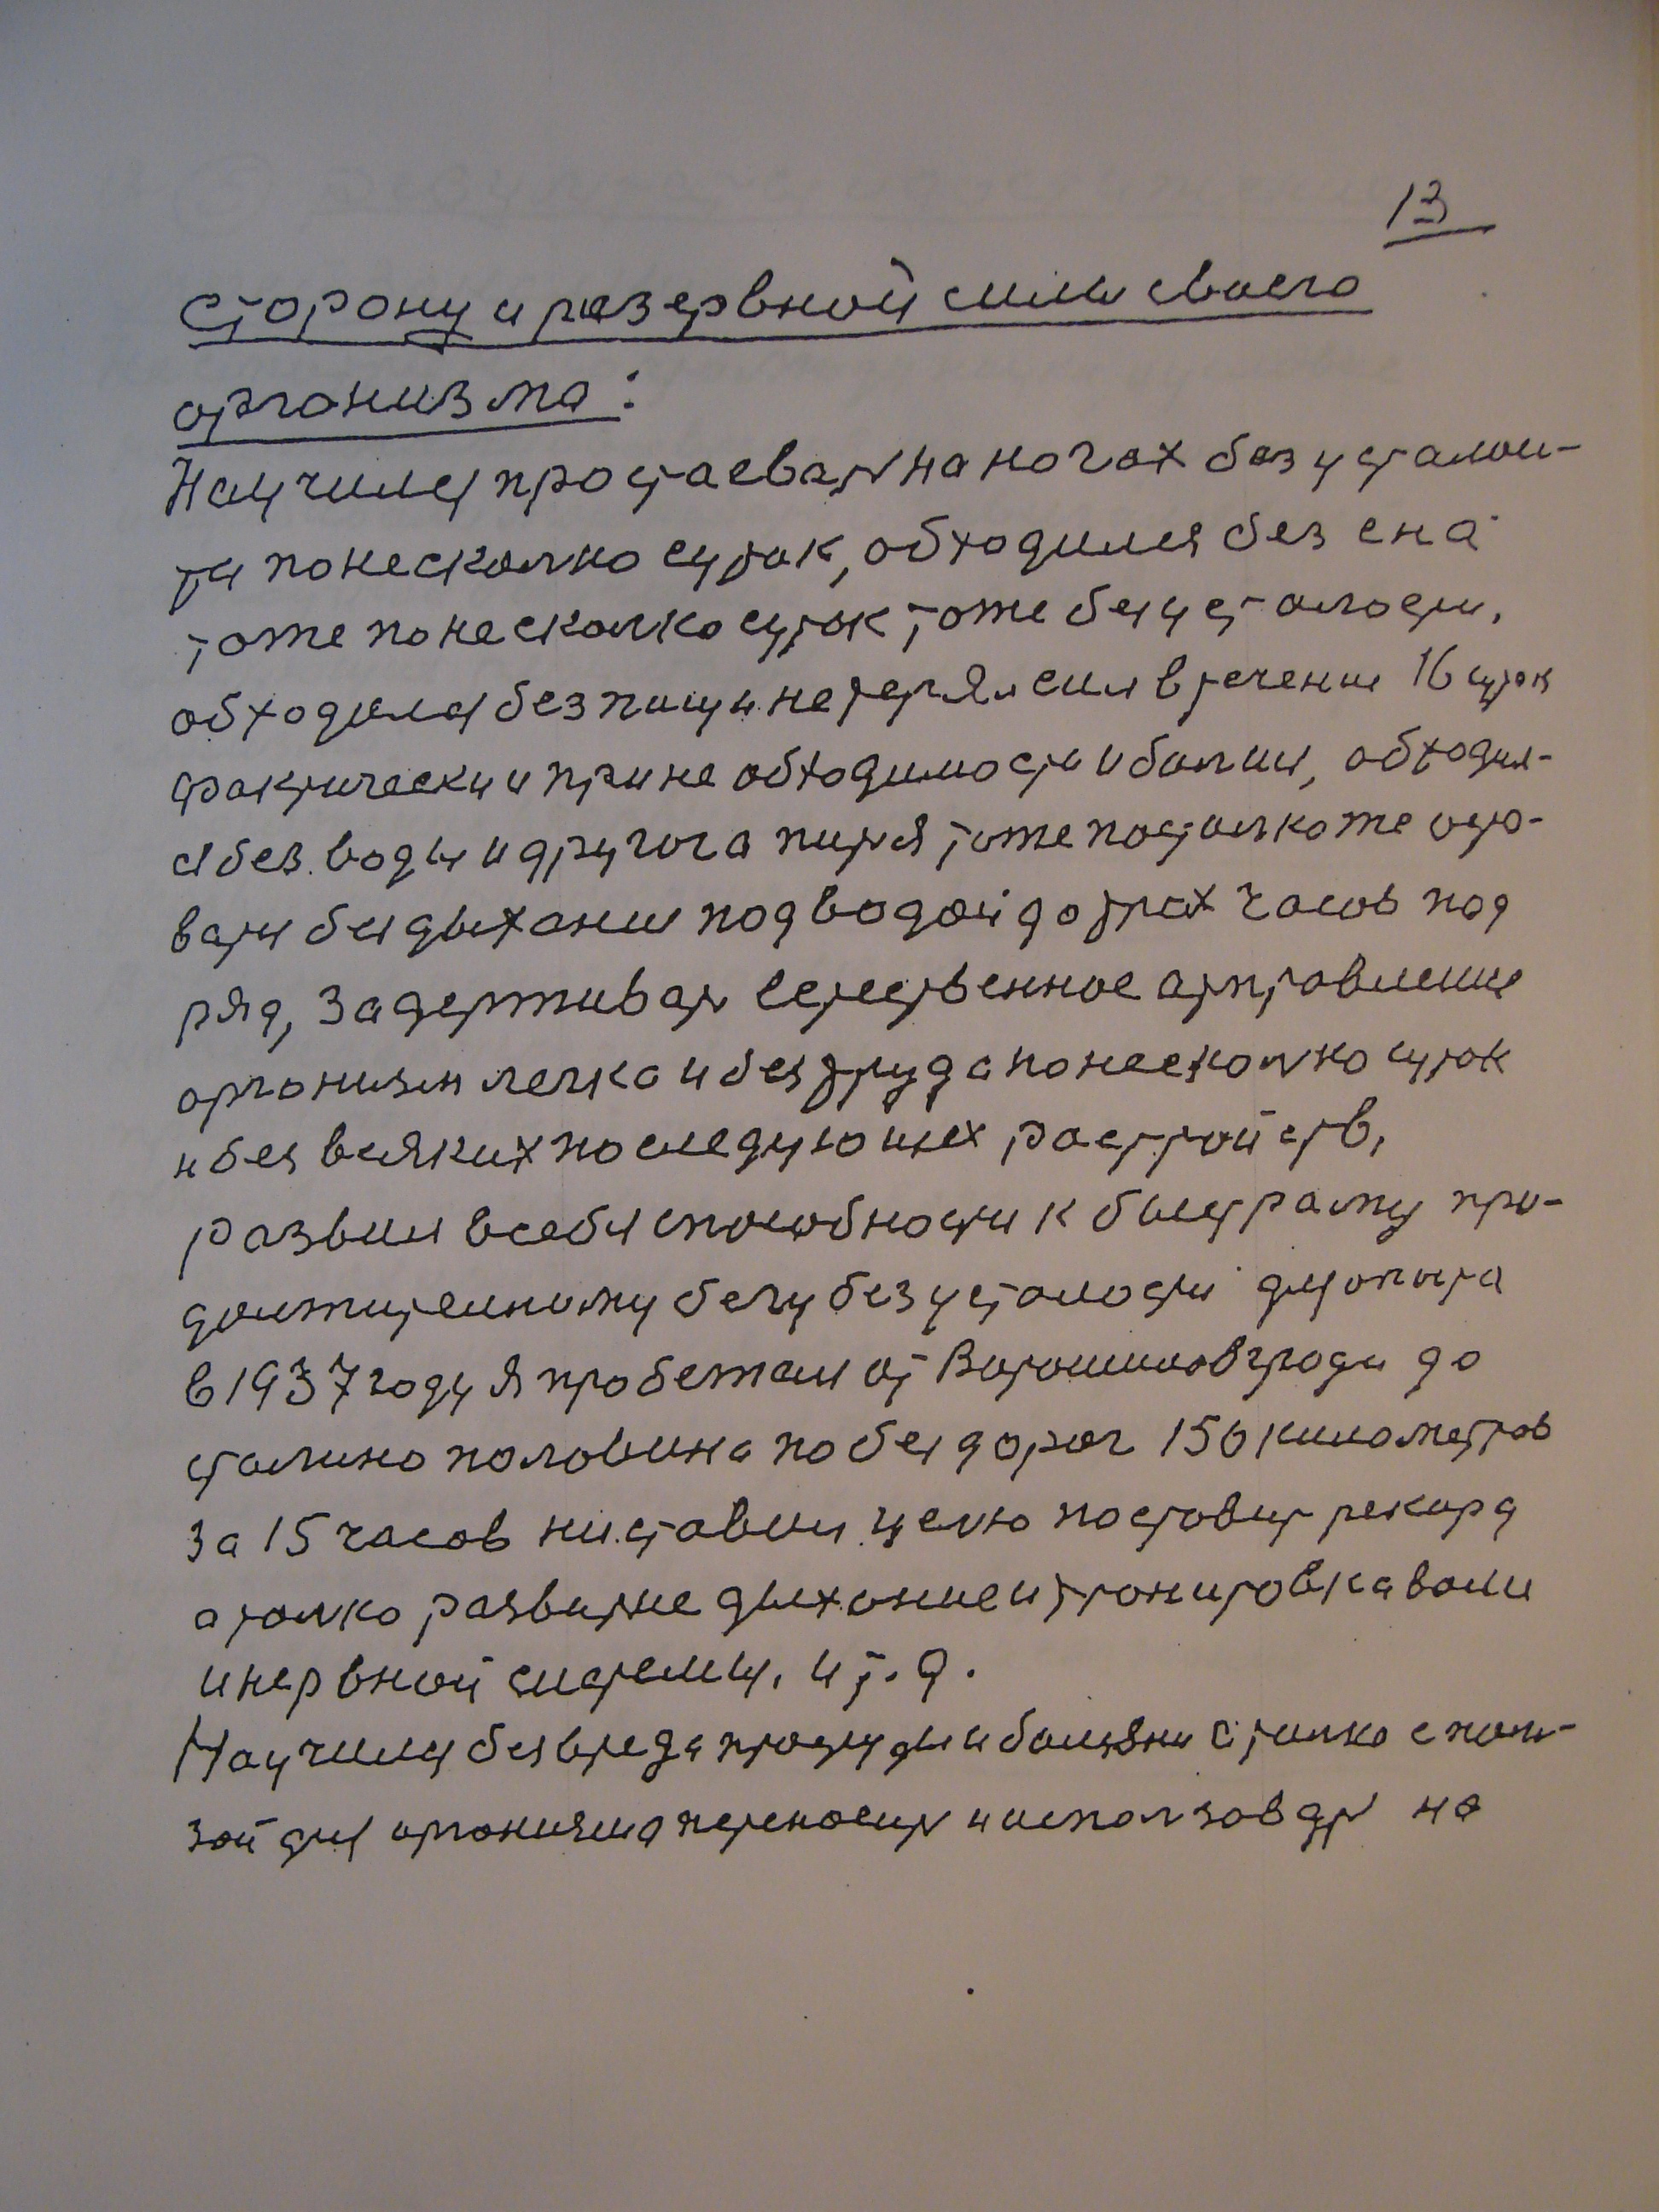 13
сторону и резервной силы своего
организма:
Научился простаеват на ногах без усталос-
ти по несколко суток, обходился без сна
тоже по несколко суток тоже без усталости,
обходился без пищи не терял сил в течении 16 суток
фактически и при не обходимости и болши, обходил-
ся без воды и другога питя тоже по столко же
вати без дыхании под водой до трах часов под
ряд, Задерживат естественное атправление
организм легка и без труда по несколко суток
и без всяких последующех растройств,
развил всебя способности к быстраму про-
должителному бегу без усталости для опыта
в 1937 году Я пробежал от Ворошиловграда до
сталино половина по без дорог 150 километров
За 15 часов ни ставил целю поставит рекорд
а толко развитие дыхание и тронировка воли
и нервной системы. и т. д.
Научился без вреда простуды и болезни а толко с пол-
зой для организма переносит и исползоват на